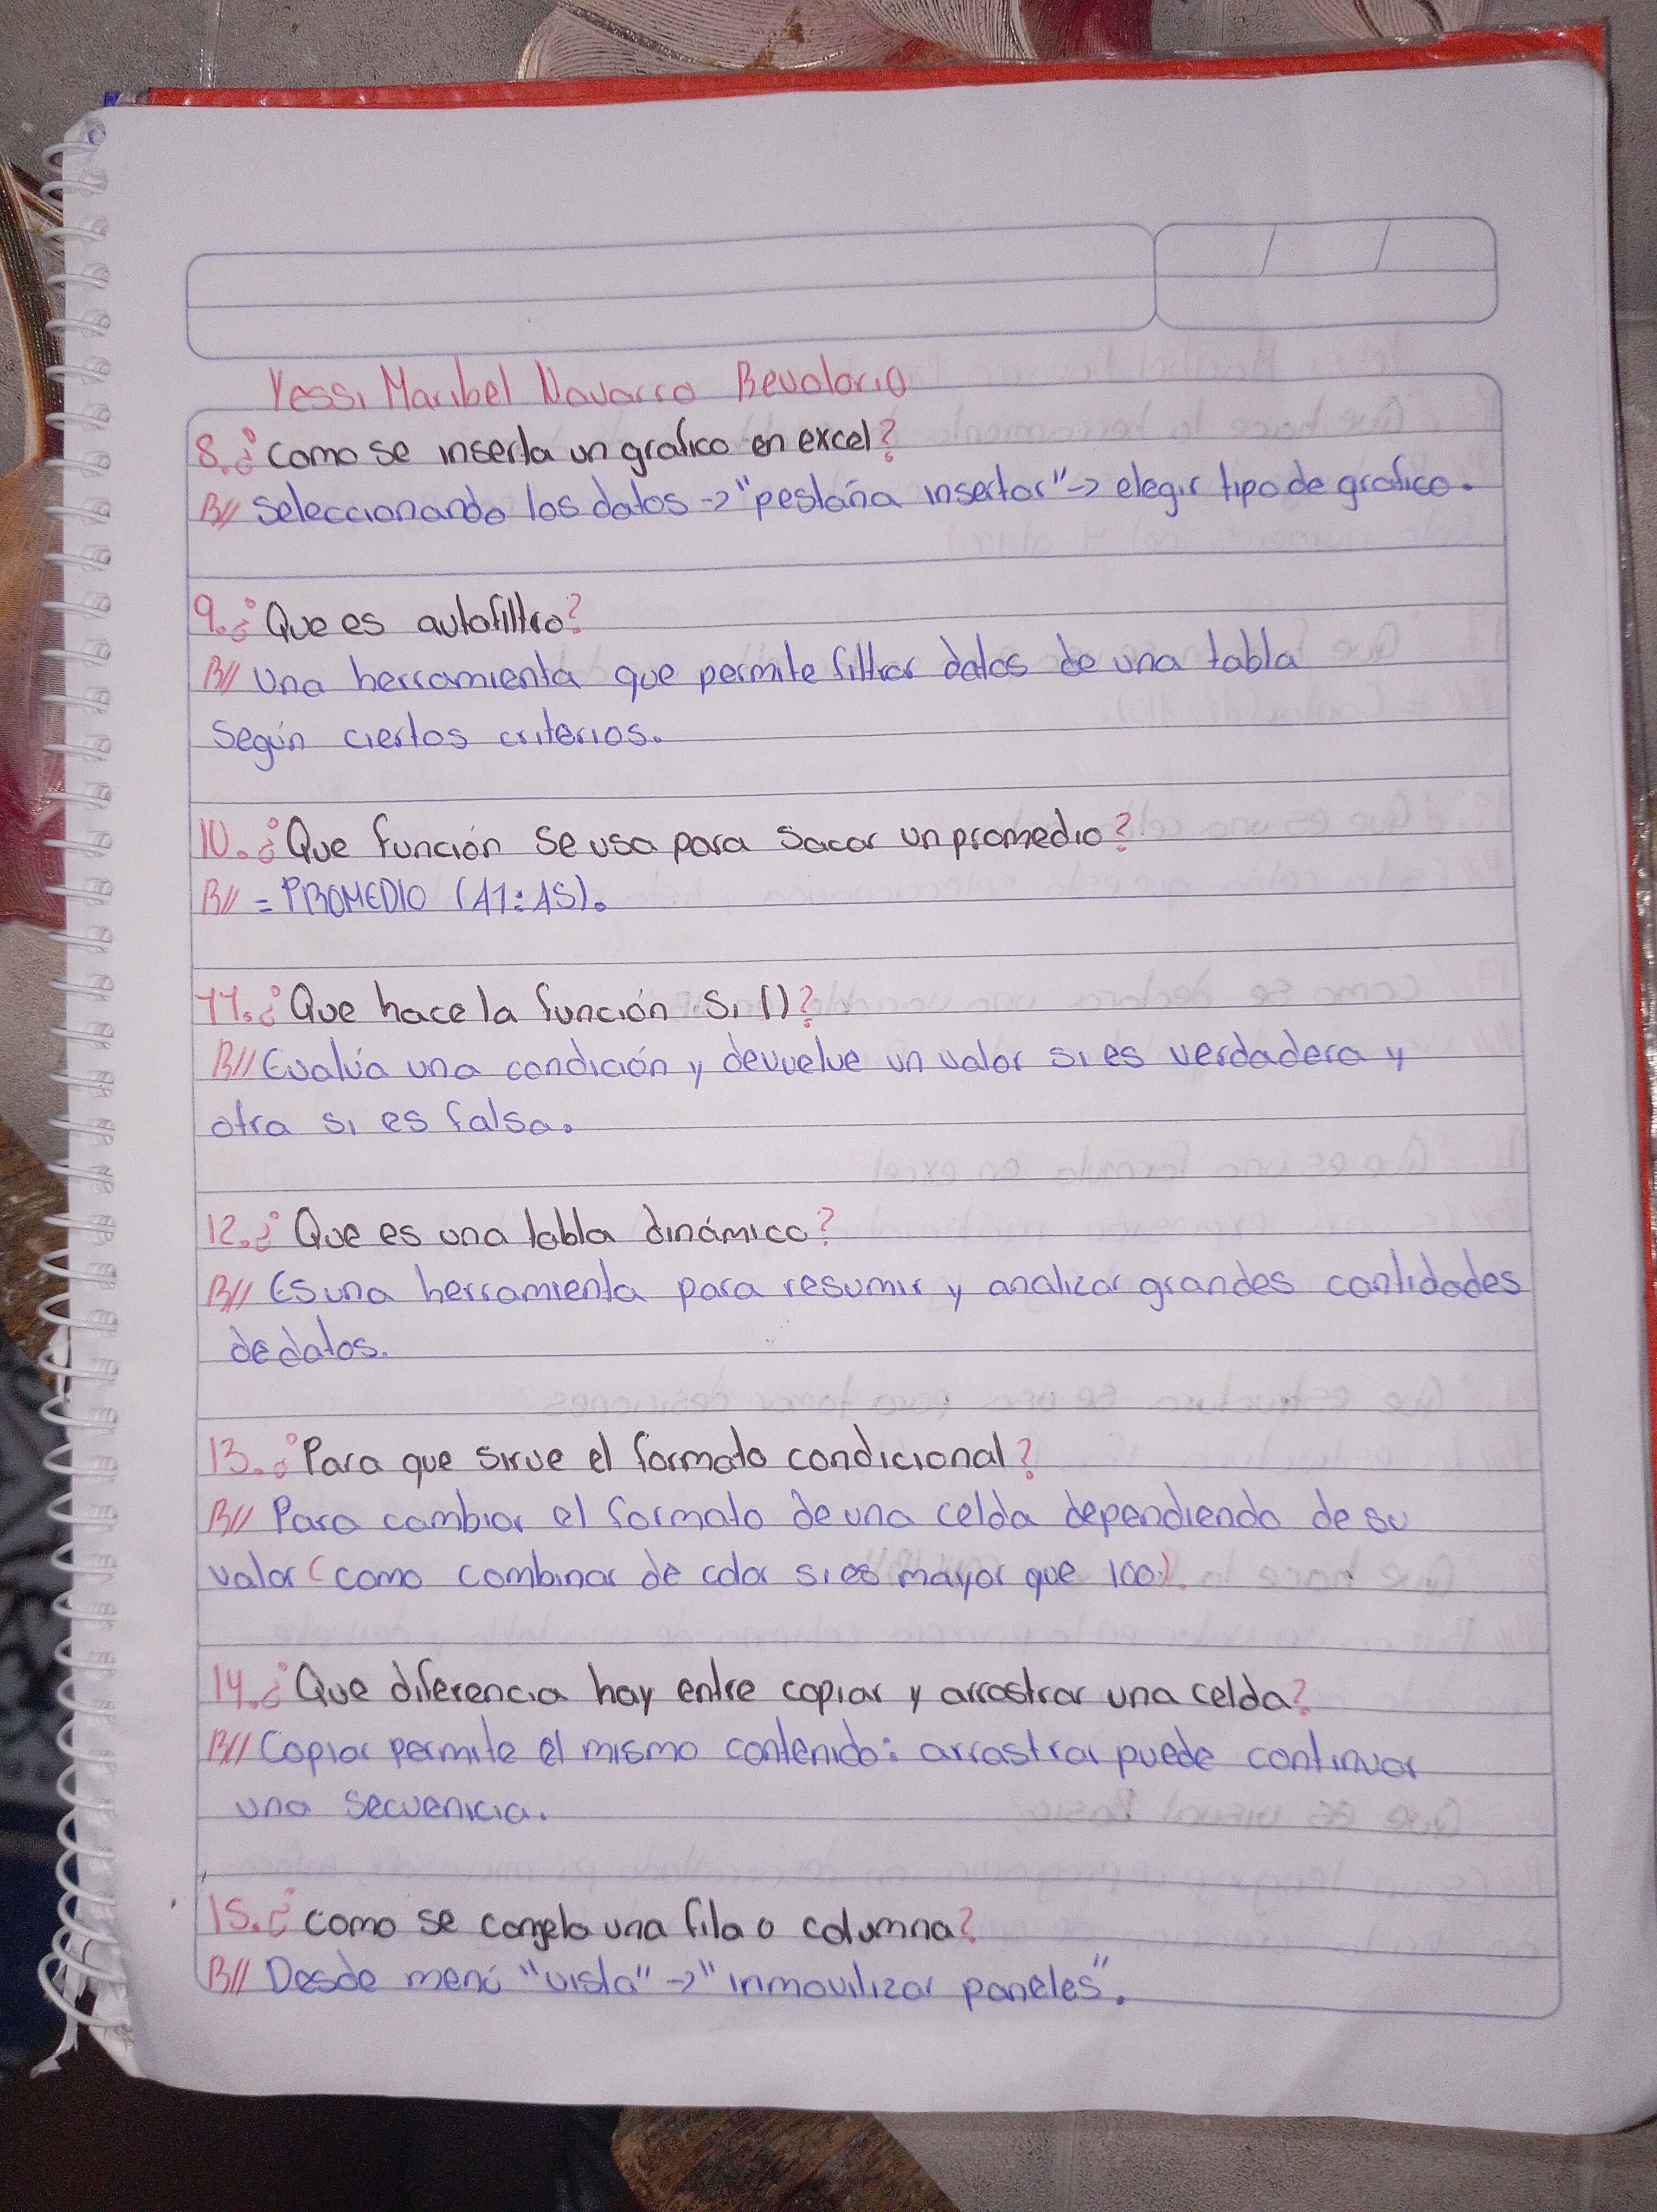 Yessi Maribel Navarro Revolorio
8. ¿Como se inserta un grafico en excel?
R// Seleccionando los datos -> "pestaña insertar" -> elegir tipo de grafico.
9. ¿Que es autofiltro?
R// Una herramienta que permite filtrar datos de una tabla
Según ciertos criterios.
10. ¿Que función se usa para sacar un promedio?
R// = PROMEDIO (A1:A5).
11. ¿Que hace la función Si ()?
R// Evalúa una condición y devuelve un valor si es verdadera y
otra si es falsa.
12. ¿Que es una tabla dinámica?
R// Es una herramienta para resumir y analizar grandes cantidades
de datos.
13. ¿Para que sirve el formato condicional?
R// Para cambiar el formato de una celda dependiendo de su
valor (como combinar de color si es mayor que 100).
14. ¿Que diferencia hay entre copiar y arrastrar una celda?
R// Copiar permite el mismo contenido: arrastrar puede continuar
una secuenicia.
15. ¿como se congela una fila o columna?
R// Desde menú "vista" -> "inmovilizar paneles".